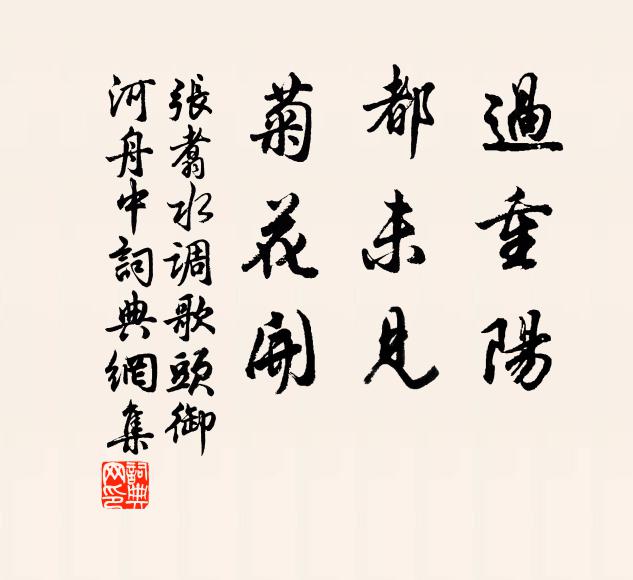 過重陽
都未見
菊花開
張翥水调歌頭御
河舟中詞典網集
詞典
网印